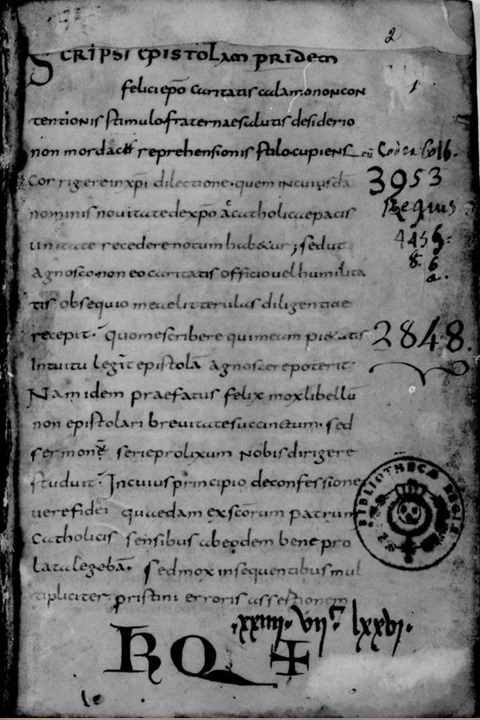 2
SCRIPSI EPISTOLAM PRIDEM
felici epo caritatis calamo non con 1
tentionis stimulo fraternae salutis desiderio
non mordaci reprehensionis stilo cupiens eū Codex Colb.
Corrigere in xpi dilectione quem in cuiusdā 3953
nominis nouitate de xpo a catholicae pacis Regius
unitate recedere notum habetur; sed ut 4456.
Agnosco non eo caritatis officio uel humilita 8. 6
tis obsequio meae litterulas diligentiae a.
recepit. quo me scribere qui mecum pietatis 2848.
Intuitu legit epistolā agnoscere poterit.
Nam idem praefatus felix mox libellū
non epistolari breuitate succinctum. sed
sermonū serie prolixum nobis dirigere
studuit. In cuius principio de confessione
uere fidei quaedam ex scorum patrum
Catholicis sensibus ab eodem bene pro
lata legebā. Sed mox in sequentibus mul
tipliciter pristini erroris assertionem
.xxiiii. VII .lxxvi.
BIBLIOTHECAE REGIAE